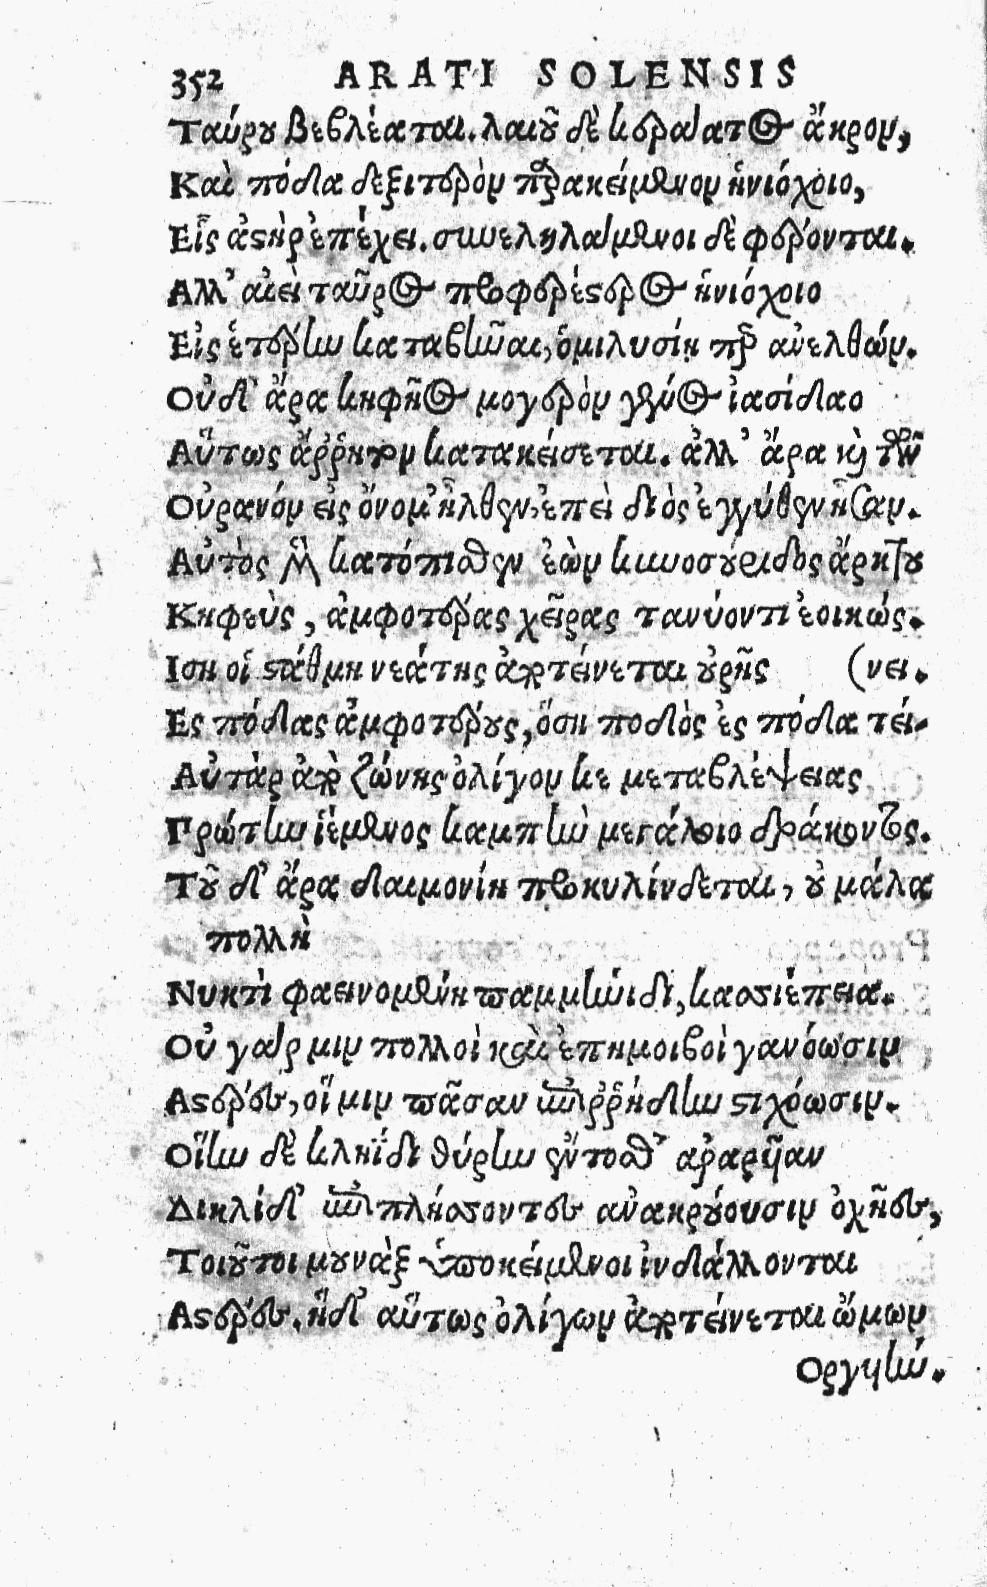 352 ARATI SOLENSIS
Ταύρου βεβλέαται. λαιοῦ δὲ κεράατος ἄκρον,
Καὶ πόδα δεξιτερὸν παρακείμενον ἡνιόχοιο,
Εἷς ἀστὴρ ἐπέχει. συνεληλάμενοι δὲ φέρονται.
Αλλ' αἰεὶ ταῦρος προφερέστερος ἡνιόχοιο
Εἰς ἑτέρην καταβῆναι, ὁμιλυσίῃ περ ἀνελθών.
Οὐδ' ἄρα κηφῆος μογερὸν γένος ἰασίδαο
Αὔτως ἄρρητον κατακείσεται. ἀλλ' ἄρα καὶ τῶν
Οὐρανὸν εἰς ὄνομ' ἦλθεν, ἐπεὶ διὸς ἐγγύθεν ἦσαν.
Αὐτὸς μὲν κατόπισθεν ἐὼν κυνοσουρίδος ἄρκτου
Κηφεὺς, ἀμφοτέρας χεῖρας τανύοντι ἐοικώς.
Ιση οἱ στάθμη νεάτης ἀποτείνεται οὐρῆς (νει.
Ες πόδας ἀμφοτέρους, ὅση ποδὸς ἐς πόδα τεί-
Αὐτὰρ ἀπὸ ζώνης ὀλίγον κε μεταβλέψειας
Πρώτην ἱέμενος καμπὴν μεγάλοιο δράκοντος.
Τοῦ δ' ἄρα δαιμονίη προκυλίνδεται, οὐ μάλα
πολλὴ
Νυκτὶ φαεινομένη παμμήνιδι, κασσιέπεια.
Οὐ γάρ μιν πολλοὶ καὶ ἐπημοιβοὶ γανόωσιν
Αστέρες, οἵ μιν πᾶσαν ἐπιρρήδην στιχόωσιν.
Οἵην δὲ κληῗδι θύρην ἔντοσθ' ἀραρῆαν
Δικλίδ' ἐπιπλήσσοντες ἀνακρούουσιν ὀχῆες,
Τοιοῦτοι μουνὰξ ὑποκείμενοι ἰνδάλλονται
Αστέρες. ἡδ' αὔτως ὀλίγων ἀποτείνεται ὤμων
Οργυιήν.